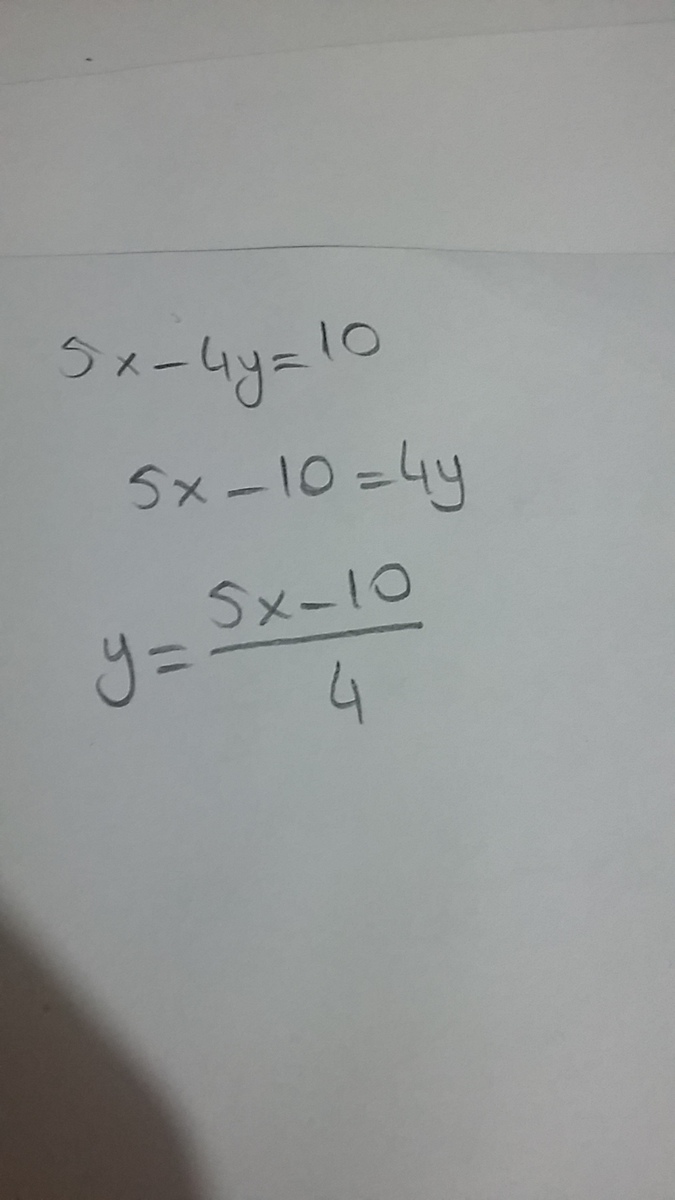 5x-4y=10
5x-10=4y
y=5x-10/4